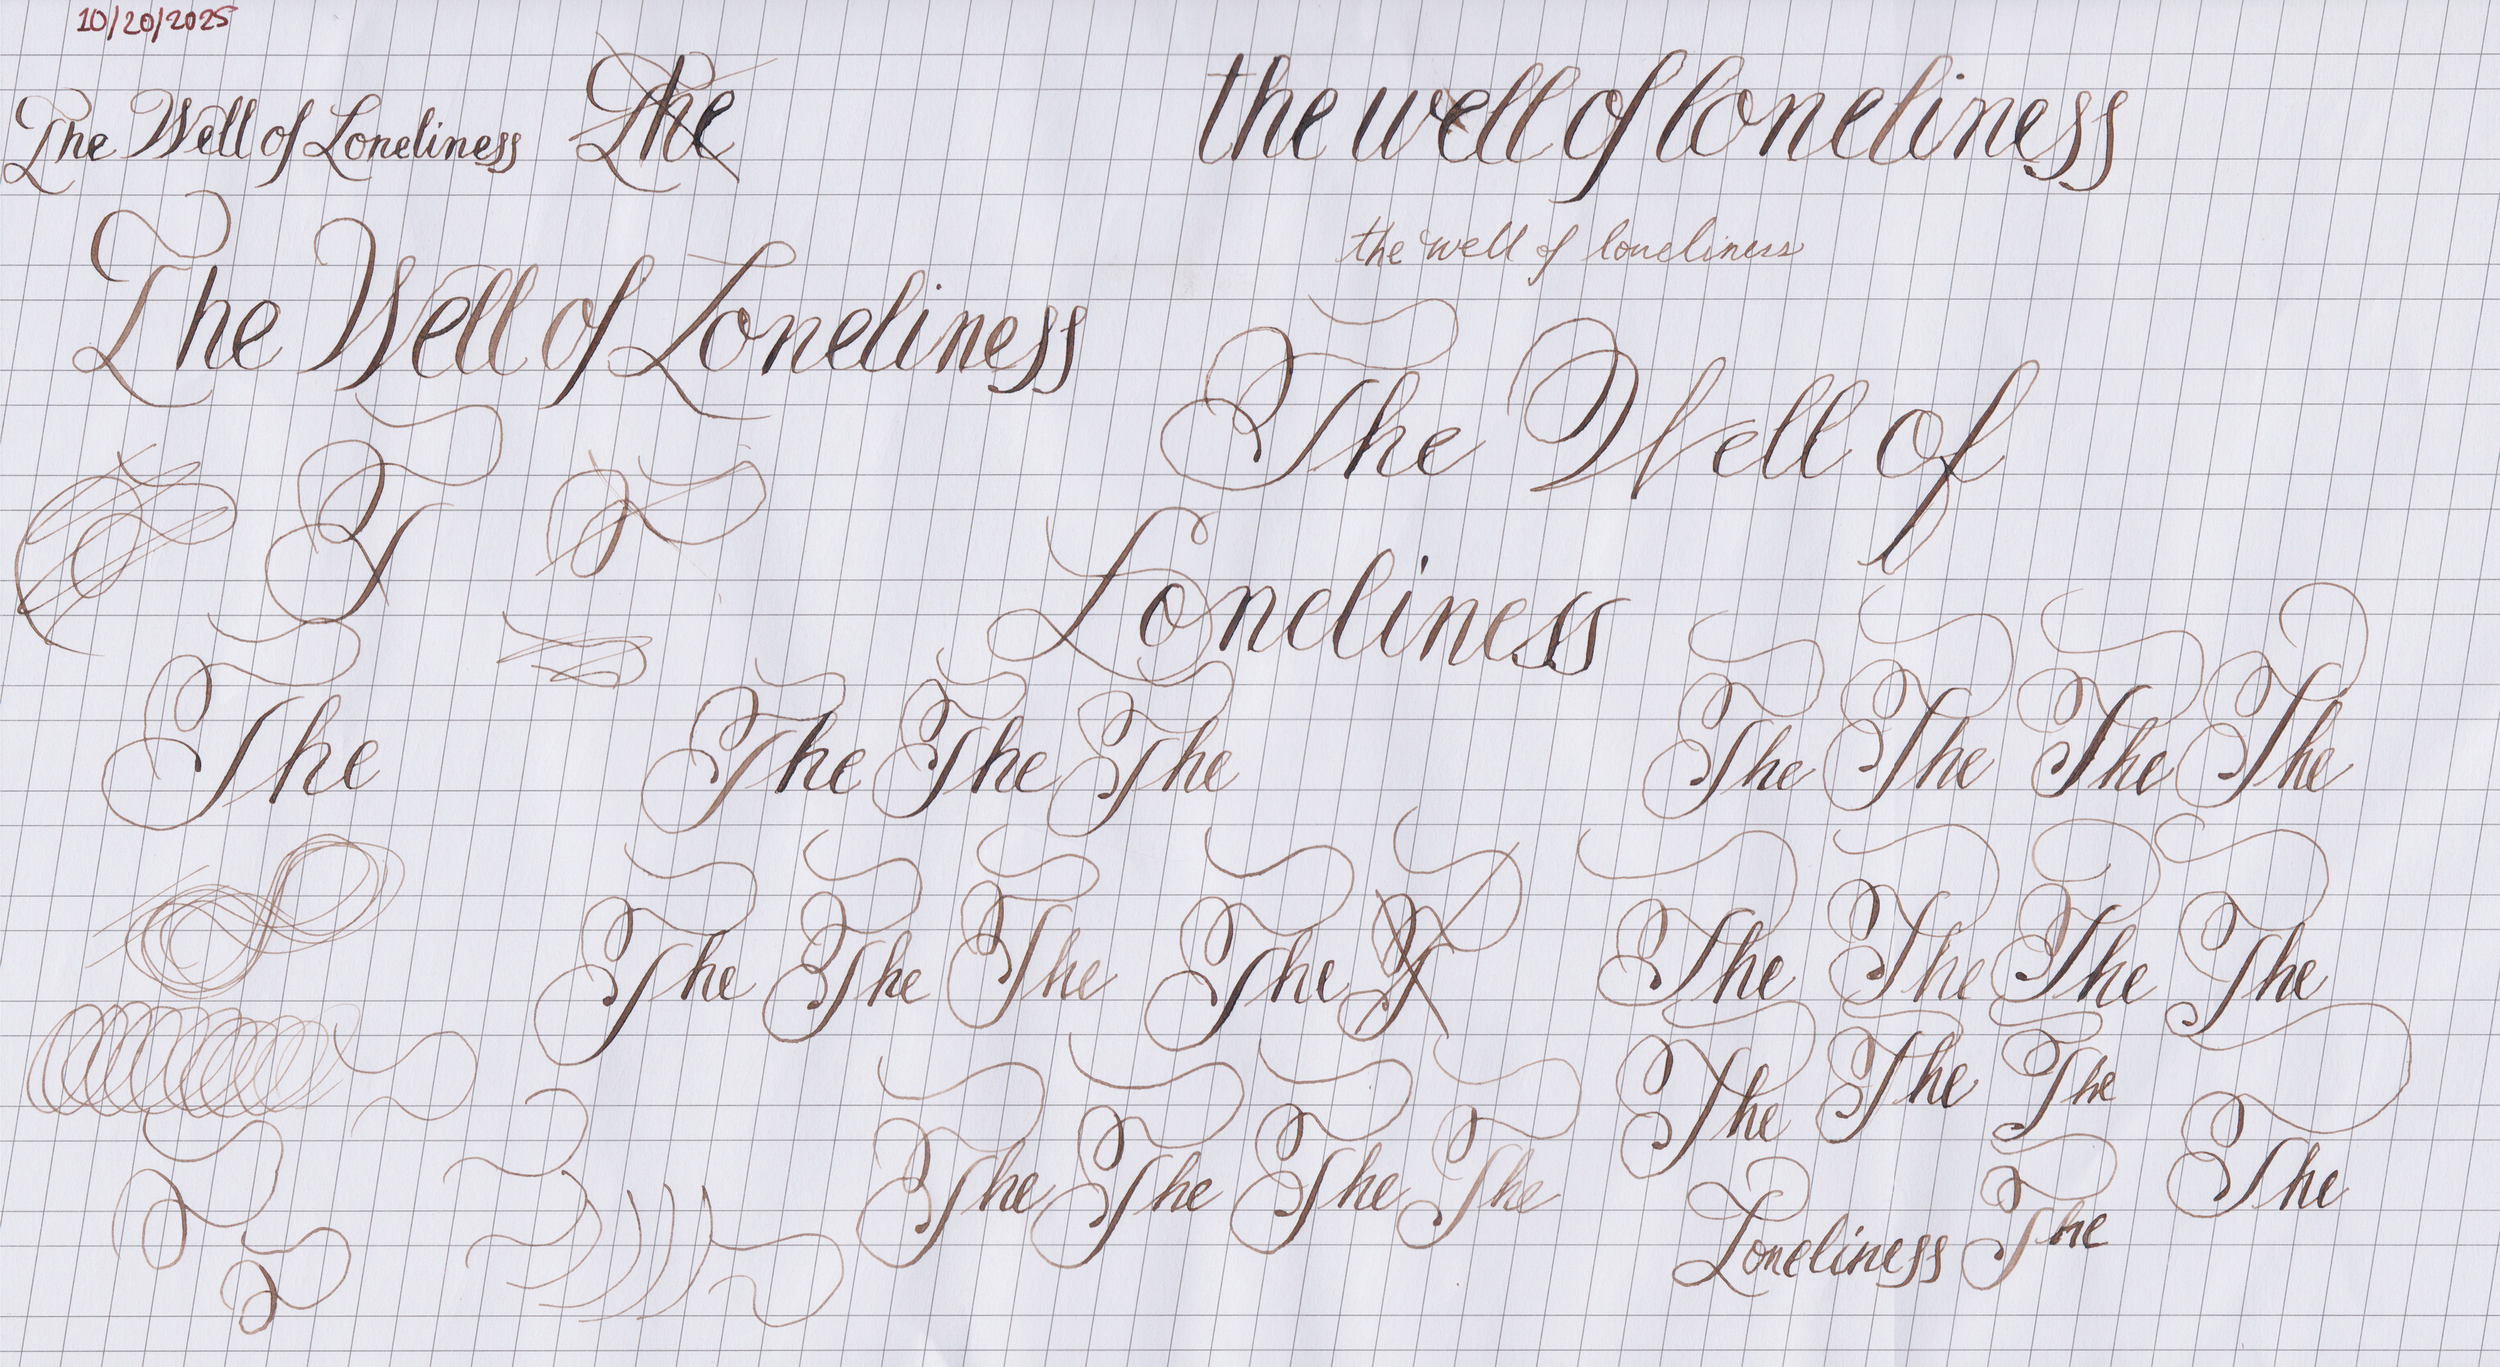 10/20/2025
The Well of Loneliness The
the well of loneliness
the well of loneliness
The Well of Loneliness
The Well of
Loneliness
T
The
The The The
The The The The
The The The The T
The The The The
The The The The
The The The
The
Loneliness The